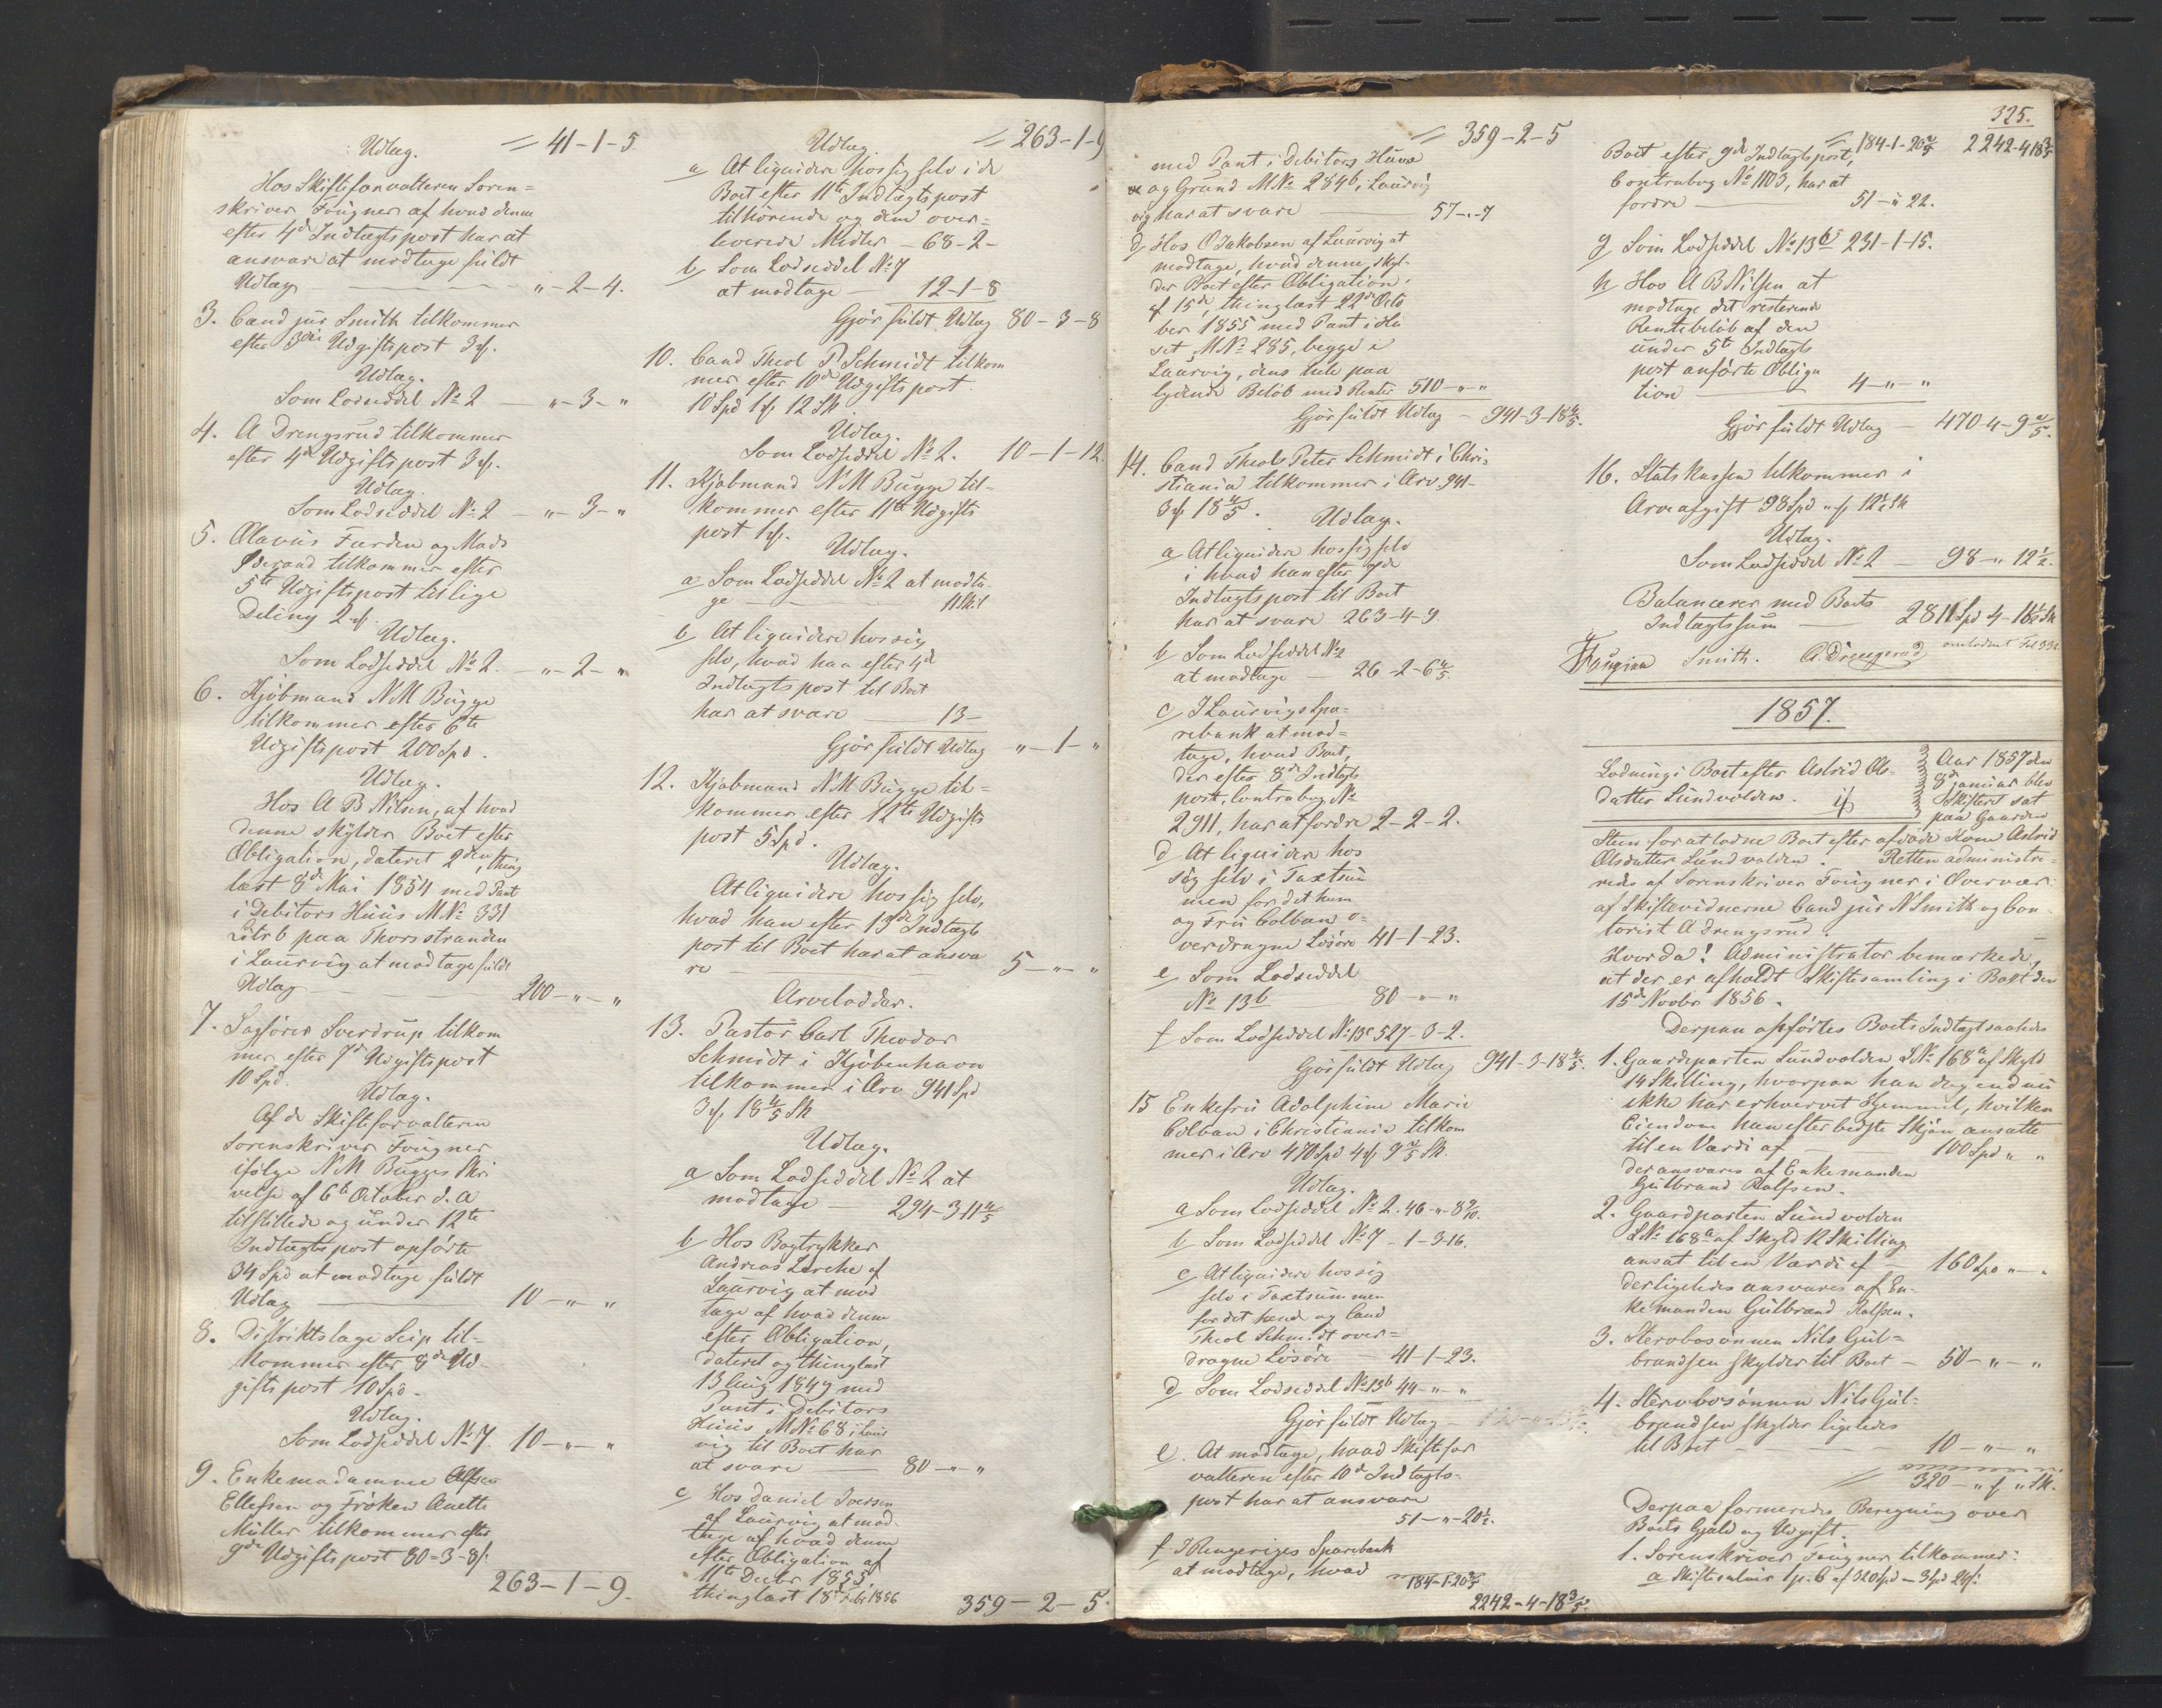 Udlæg. = 41-1-5
Hos Skifteforvalteren Soren=
skriver Fougner af hvad denne
efter 4de Indtægtspost har at
ansvare at modtage fuldt
Udlæg — „-2-4.
3. Cand jur Smith tilkommer
efter 3die Udgiftspost 3 ₰.
Udlæg.
Som Lodseddel No 2 — „-3-„
4. A Drengsrud tilkommer
efter 4de Udgiftspost 3 ₰.
Udlæg.
Som Lodseddel No 2 — „-3-„
5. Olavus Furden og Mads
tilkommer efter
5te Udgiftspost til lige
Deling 2 ₰.
Udlæg.
Som Lodseddel No 2. — „-2-„
6. Kjøbmand N M Bugge
tilkommer efter 6te
Udgiftspost 200 Spd.
Udlæg.
Hos A B Nilsen, af hvad
denne skylder Boet efter
Obligation, dateret 2den, thing
læst 8de Mai 1854 med Pant
i Debitors Huus MNo 331
Litr b paa Thorsstranden
i Laurvig at modtage fuldt
Udlæg — 200-„-„
7. Sagfører Sverdrup tilkom
mer efter 7de Udgiftspost
10 Spd.
Udlæg.
Af de Skifteforvalteren
Sorenskriver Fougner
ifølge N M Bugges Skri
velse af 6te October d. A
tilstillede og under 12te
Indtægtspost opførte
34 Spd at modtage fuldt
Udlæg — 10-„-„
8. Distriktslæge Seip til=
kommer efter 8de Ud-
giftspost 10 Spd.
Udlæg.
Som Lodseddel No 7. 10-„-„
9. Enkemadamme
Ellefsen og Frøken Anette
Müller tilkommer efter
9de Udgiftspost 80-3-8 ß.
263-1-9.
Udlæg. = 263-1-9
a At liquidere hos sig selv i de
Boet efter 11te Indtægtspost
tilhørende og dem over=
leverede Midler — 68-2-
b Som Lodseddel No 7
at modtage — 12-1-8
Gjør fuldt Udlæg 80-3-8
10. Cand Theol P Schmidt tilkom
mer efter 10de Udgiftspost
10 Spd 1 ₰ 12 Sk.
Udlæg.
Som Lodseddel No 2. 10-1-12.
11. Kjøbmand N M Bugge til=
kommer efter 11te Udgifts
post 1 ₰.
Udlæg.
a Som Lodseddel No 2 at modta-
ge — 11 Sk.
b At liquidere hos sig
selv, hvad han efter 4de
Indtægtspost til Boet
har at svare — 13-
Gjør fuldt Udlæg „-1-„
12. Kjøbmand N M Bugge til=
kommer efter 12te Udgifts
post 5 Spd.
Udlæg.
At liquidere hos sig selv,
hvad han efter 13de Indtægts
post til Boet har at ansva
re — 5-„-„
Arvelodder.
13. Pastor Carl Theodor
Schmidt i Kjøbenhavn
tilkommer i Arv 941 Spd
3 ₰ 18 4/5 Sk
Udlæg.
a Som Lodseddel No 2 at
modtage — 294-3-11 4/5
b Hos Bogtrykker
Andreas Lerche af
Laurvig at mod
tage af hvad denne
efter Obligation,
dateret og thinglæst
13 Aug 1849 med
Pant i Debitors
Huus MNo 68 i Laur
vig til Boet har
at svare — 80-„-„
c Hos Daniel Iversen
af Laurvig at mod-
tage af hvad denne
efter Obligation af
11te Decbr 1855,
thinglæst 18 1856 359-2-5.
= 359-2-5
med Pant i Debitors Huus
og Grund MNo 284b, i Laurvig
vig har at svare — 57-„-7
d Hos O Jakobsen af Laurvig at
modtage, hvad denne skyl-
der Boet efter Obligation
af 15de, thinglæst 22de Octo
ber 1855 med Pant i Hu
set MNo 285, begge i
Laurvig, dens hele paa
lydende Beløb med Renter 510-„-„
Gjør fuldt Udlæg — 941-3-18 4/5.
14. Cand Theol Peter Schmidt i Chri=
stiania tilkommer i Arv 941-
3 ₰ 18 4/5.
Udlæg.
a At liquidere hos sig selv
i hvad han efter 7de
Indtægtspost til Boet
har at svare 263-4-9
b Som Lodseddel No 2
at modtage — 26-2-6 4/5.
c I Laurvigs Spa-
rebank at mod=
tage, hvad Boet,
der efter 8de Indtægts
post, Contrabog No
2911, har at fordre 2-2-2.
d At liquidere hos
sig selv i Taxtsum
men for det ham
og Fru Colban o=
verdragne Løsøre 41-1-23.
e Som Lodseddel
No 13b 80-„-„
f Som Lodseddel No 13c 527-3-2.
Gjør fuldt Udlæg 941-3-18 4/5.
15 Enkefru Adolphine Marie
Colban i Christiania tilkom
mer i Arv 470 Spd 4 ₰ 9 2/5 Sk.
Udlæg.
a Som Lodseddel No 2. 46-„-8 9/10.
b Som Lodseddel No 7 — 1-3-16.
c At liquidere hos sig
selv i Taxtsummen
for det hende og Cand
Theol Schmidt over=
dragne Løsøre — 41-1-23.
d Som Lodseddel No 13b 44-„-„
Gjør fuldt Udlæg —
e. At modtage, hvad Skiftefor
valteren efter 10de Indtægts=
post har at ansvare
51-„-20 1/2.
f I Ringeriges Sparebank
at modtage, hvad 184-1-20 2/5
2242-4-18 3/5.
325.
= 184-1-20 2/5 2242-4-18 3/5
Boet efter 9de Indtægtspost,
Contrabog No 1103, har at
fordre — 51-„-22.
g Som Lodseddel No 13b 231-1-15.
h Hos A B Nilsen at
modtage det resterende
Rentebeløb af den
under 5te Indtægts
post anførte Obliga
tion — 4-„-„
Gjør fuldt Udlæg — 470-4-9 2/5.
16. Statskassen tilkommer i
Arveafgift 98 Spd „ ₰ 12 1/2 Sk
Udlæg.
Som Lodseddel No 2 — 98-„-12 1/2.
Balancerer med Boets
Indtægtssum — 2811 Spd 4-18 1/2 Sk
Fougner Smith. A. Drengsrud omlodnet Fol 332
1857.
Lodning i Boet efter Astrid Ols-
datter Lundvolden.
Aar 1857 den
8de Januar blev
Skifteret sat
paa Gaarden
Steen for at lodne Boet efter afdøde Kone Astrid
Olsdatter Lundvolden. Retten administre-
redes af Sorenskriver Fougner i Overvær
af Skiftevidnerne Cand jur N Smith og Con
torist A Drengsrud.
Hvorda! Administrator bemærkede,
at der er afholdt Skiftesamling i Boet den
15de Novbr 1856.
Derpaa opførtes Boets Indtægt saaledes
1. Gaardparten Lundvolden LNo 168a af Skyld
14 Skilling, hvorpaa han dog endnu
ikke har erhvervet Hjemmel, hvilken
Eiendom han efter bedste Skjøn ansatte
til en Værdi af — 100 Spd „ „
der ansvares af Enkemanden
Gulbrand Rolfsen.
2. Gaardparten Lundvolden
LNo 168a af Skyld 12 Skilling
ansat til en Værdi af — 160 Spd „-„
der ligeledes ansvares af En-
kemanden Gulbrand Rolfsen.
3. Stervbosønnen Nils Gul=
brandsen skylder til Boet — 50-„-„
4. Stervbosønnen Nils Gul-
brandsen skylder ligeledes
til Boet — 10-„-„
320-„ ₰ „ Sk.
Derpaa formeredes Beregning over
Boets Gjæld og Udgift.
1. Sorenskriver Fougner tilkommer:
a Skiftesalær 1 p. C af 320 Spd — 3 Spd 24 ß.